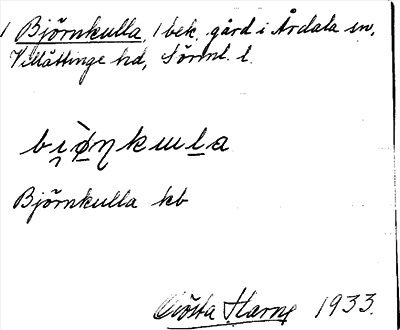 1 Björnkulla, 1 bek. gård i Årdala sn,
Villåttinge hd, Sörml. l.
Björnkulla kb
Gösta Harne 1933.